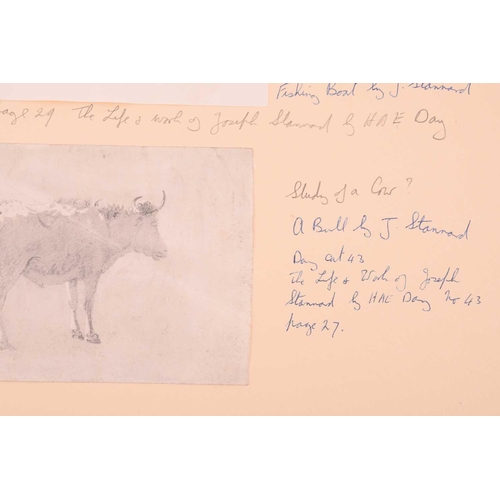 Fishing Boat by J. Stannard
page 29 The Life & work of Joseph Stannard by HAE Day
Study of a Cow?
A Bull by J. Stannard
Day cat 43
The Life & Work of Joseph
Stannard by HAE Day No 43
page 27.